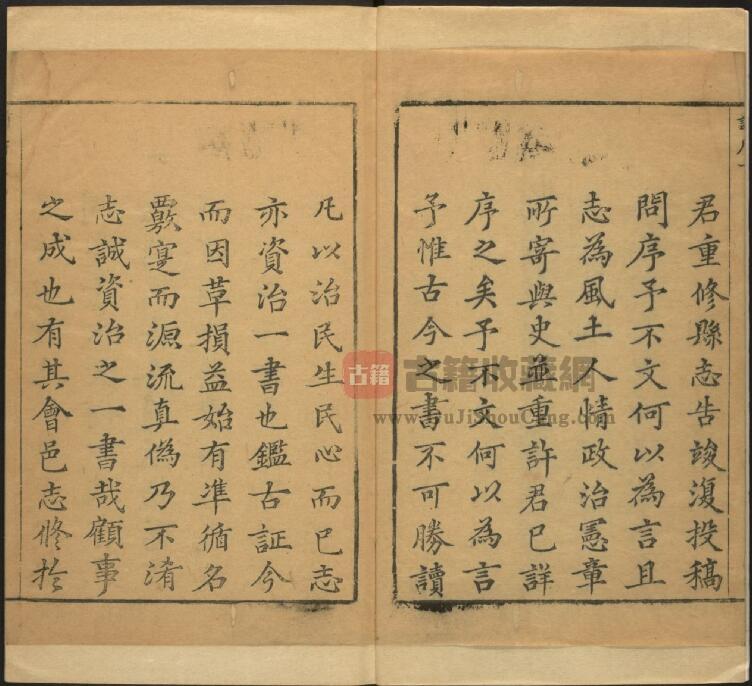 君重修縣志告竣復投稿
問序予不文何以為言且
志為風土人情政治憲章
所寄與史並重許君已詳
序之矣予不文何以為言
予惟古今之書不可勝讀
凡以治民生民心而已志
亦資治一書也鑑古証今
而因革損益始有準循名
覈寔而源流真偽乃不淆
志誠資治之一書哉顧事
之成也有其會邑志修於
古籍
古籍收藏網
www.GuJiShouCang.com